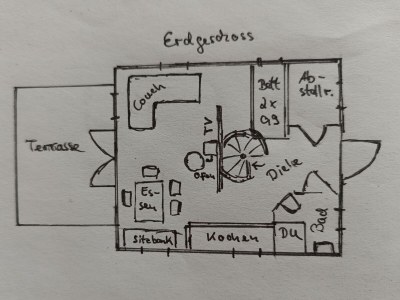 Erdgeschoss
Couch
Bett
2x
0,9
Ab-
stellr.
TV
Terrasse
Ofen
K
Diele
Es-
sen
Sitzbank
Kochen
DU
Bad